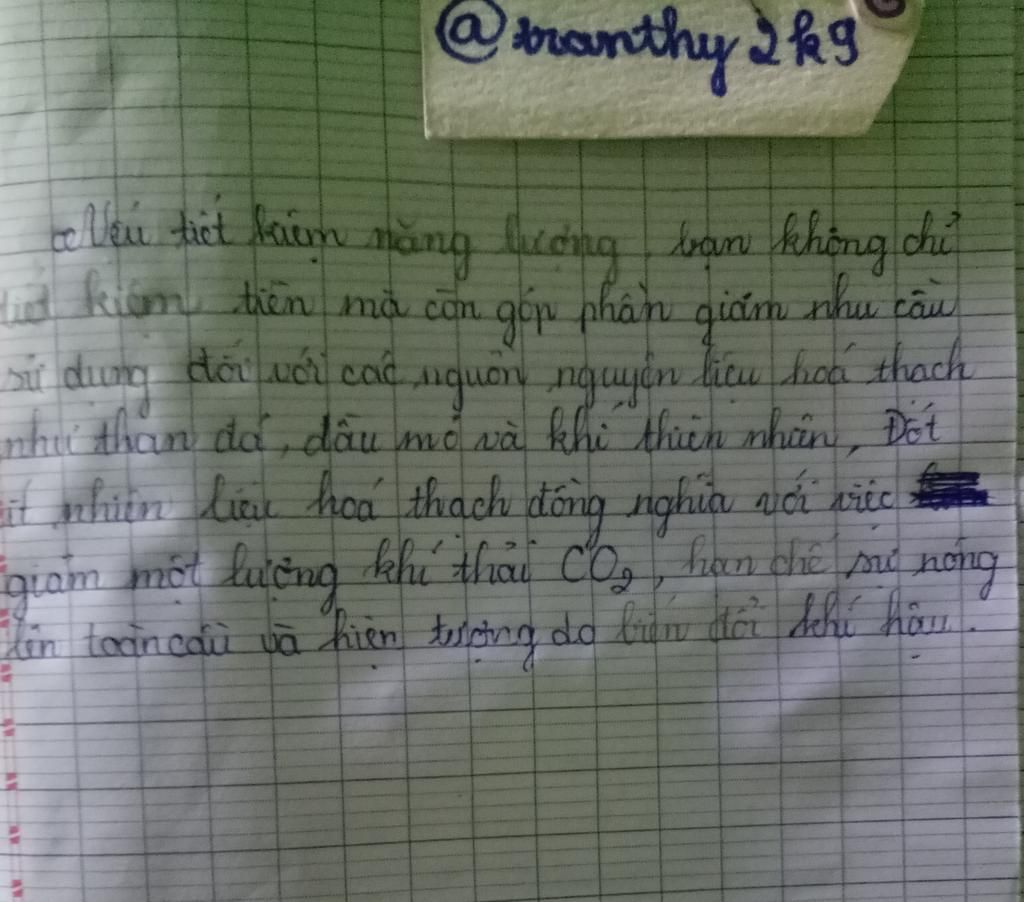 @tranthy2k9
"Nếu tiết kiệm năng lượng, bạn không chỉ
tiết kiệm tiền mà còn góp phần giảm nhu cầu
sử dụng đối với các nguồn nguyên liệu hoá thạch
như than đá, dầu mỏ và khí thiên nhiên, Đốt
ít nhiên liệu hoá thạch đồng nghĩa với việc
giảm một lượng khí thải CO₂, hạn chế sự nóng
lên toàn cầu và hiện tượng do biến đổi khí hậu.